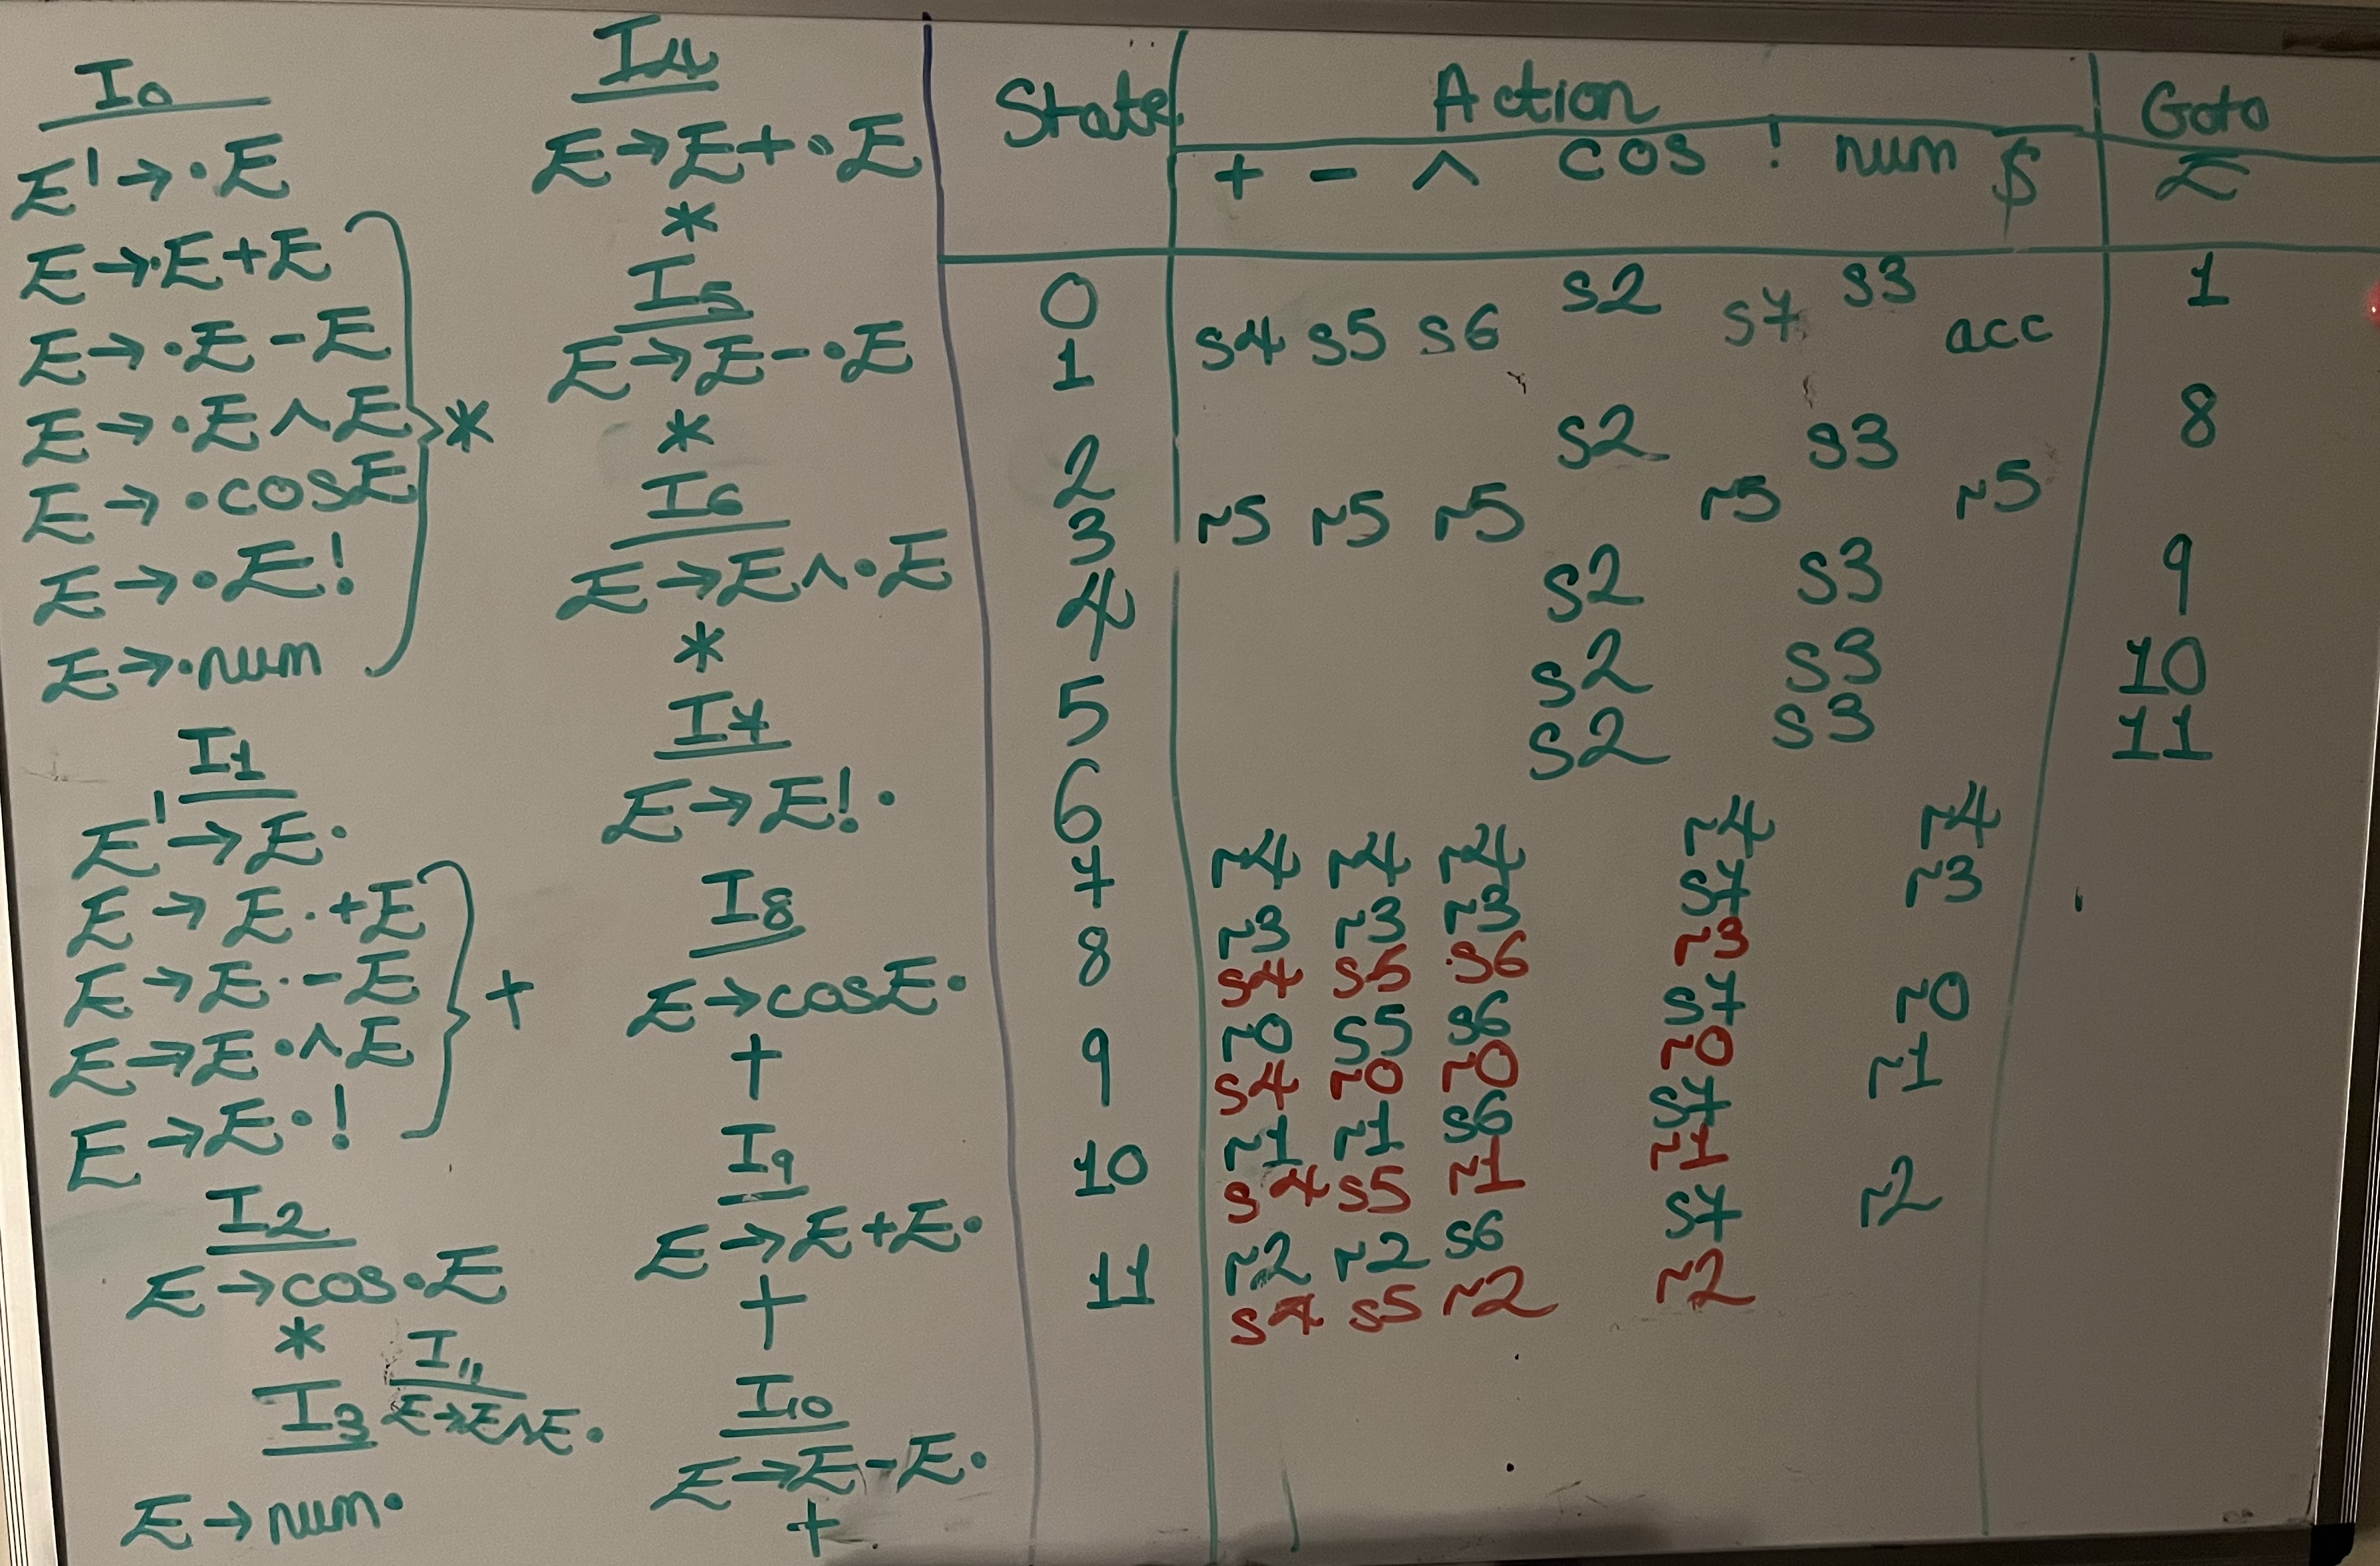 I0
E' → ·E
E → ·E+E
E → ·E-E
E → ·E∧E
E → ·cosE
E → ·E!
E → ·num
*
I1
E' → E·
E → E·+E
E → E·-E
E → E·∧E
E → E·!
+
I2
E → cos·E
*
I3
E → num·
I11
E → E∧E·
I4
E → E+·E
*
I5
E → E-·E
*
I6
E → E∧·E
*
I7
E → E!·
I8
E → cosE·
+
I9
E → E+E·
+
I10
E → E-E·
+
State Action Goto
+ - ∧ cos ! num $ E
0 s2 s3 1
1 s4 s5 s6 s7 acc
2 s2 s3 8
3 r5 r5 r5 r5 r5
4 s2 s3 9
5 s2 s3 10
6 s2 s3 11
7 r4 r4 r4 r4 r4
8 r3 r3 r3 s7 r3
s4 s5 s6 r3
9 r0 s5 s6 s7 r0
s4 r0 r0 r0
10 r1 r1 s6 s7 r1
s4 s5 r1 r1
11 r2 r2 s6 s7 r2
s4 s5 r2 r2